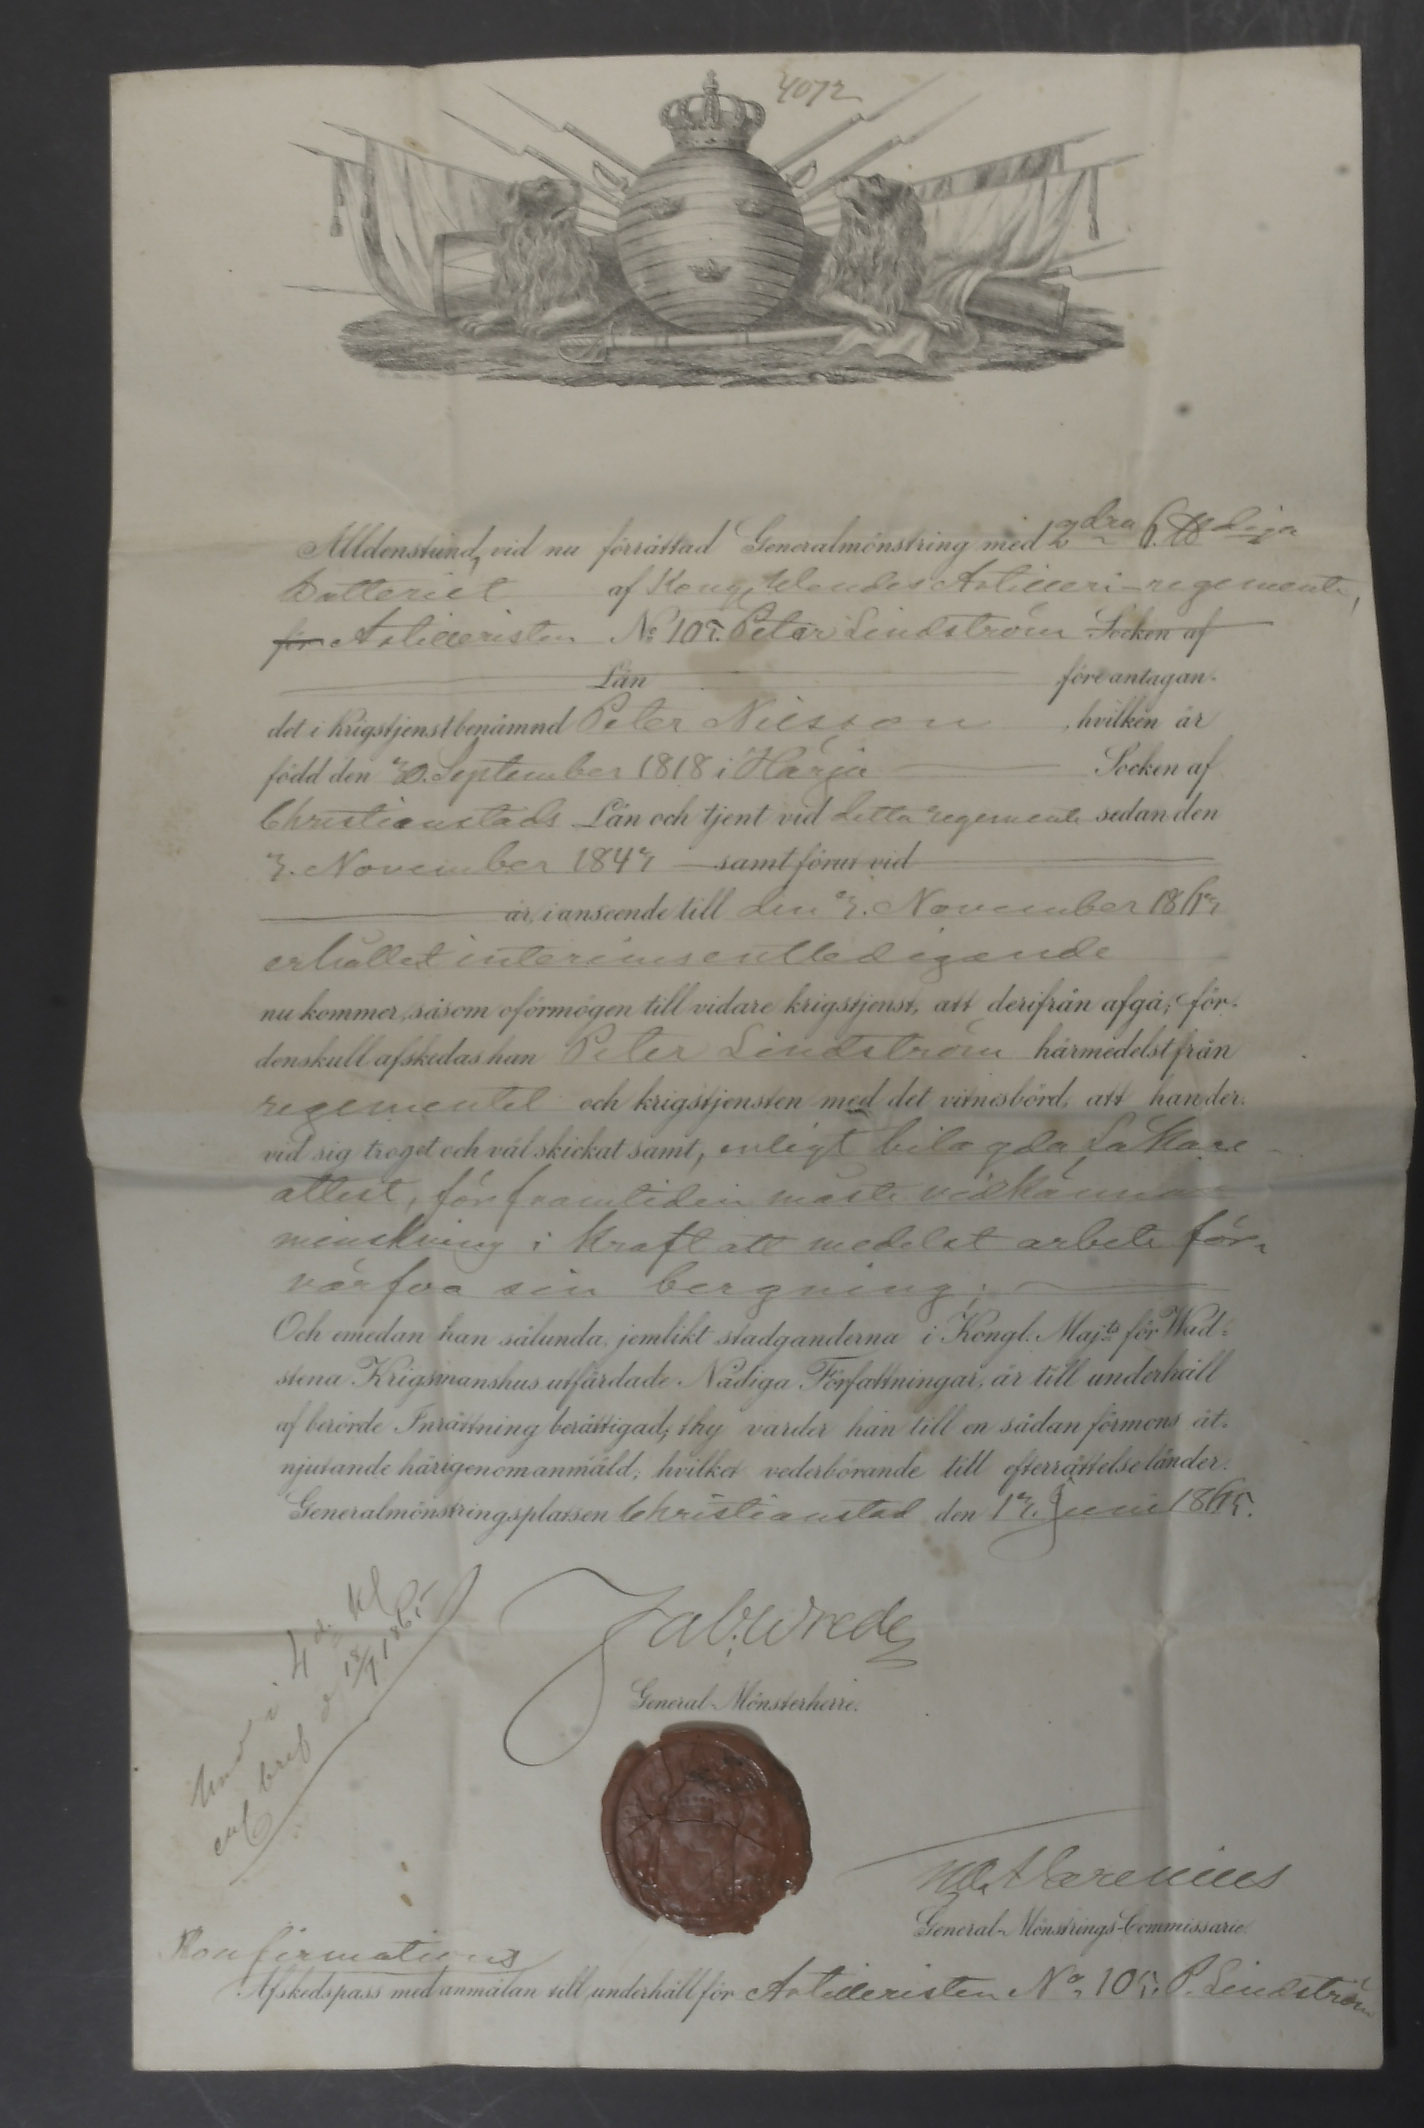 4072
Alldenstund, vid nu förrättad Generalmönstring med 2dra 6. ℔diga
Batteriet af Kongl. Wendes Artilleri-regemente,
för Artilleristen No 105. Peter Lindström Socken af
Län före antagan-
det i krigstjenst benämnd Peter Nilsson, hvilken är
född den 30. September 1818 i Härja Socken af
Christianstads Län och tjent vid detta regemente sedan den
3. November 1843 samt förut vid
är, i anseende till den 3. November 1863
erhållet interimsentledigande
nu kommer, såsom oförmögen till vidare krigstjenst, att derifrån afgå; för-
denskull afskedas han Peter Lindström härmedelst från
regementet och krigstjensten med det vitnesbörd, att han der-
vid sig troget och väl skickat samt, enligt bilagda Läkare-
attest, för framtiden måste vidkännas
minskning i kraft att medelst arbete för-
värfva sin bergning;
Och emedan han sålunda, jemlikt stadganderna i Kongl. Majts för Wad-
stena Krigsmanshus utfärdade Nådiga Författningar, är till underhåll
af berörde Inrättning berättigad; thy varder han till en sådan förmons åt-
njutande härigenom anmäld; hvilket vederbörande till efterrättelse länder.
Generalmönstringsplatsen Christianstad den 13. Juni 1865.
Fab: Wrede
General-Mönsterherre.
Und i 4de Kl
enl bref d 18/7 1865
General-Mönstrings-Commissarie
Konfirmations
Afskedspass med anmälan till underhåll för Artilleristen No 105. P. Lindström